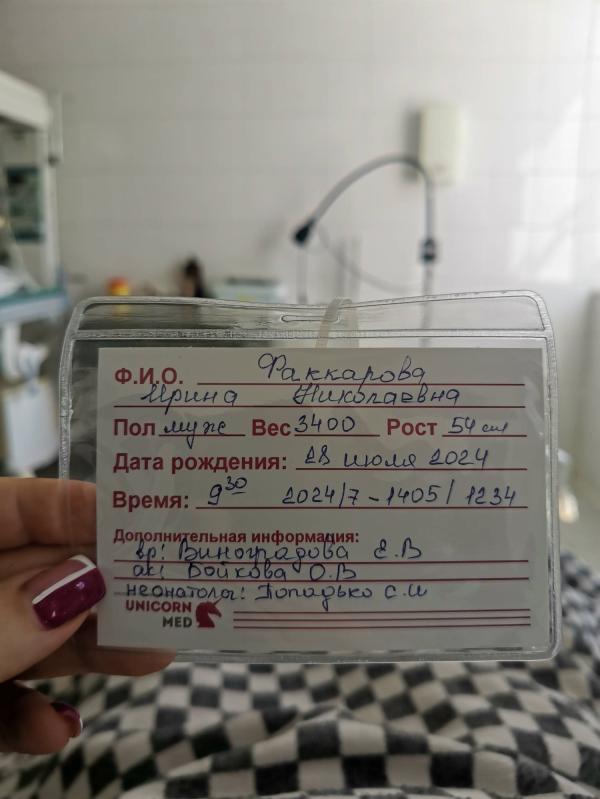 Ф.И.О. Факкарова
Ирина Николаевна
Пол муж Вес 3400 Рост 54 см
Дата рождения: 28 июля 2024
Время: 9 30 2024/7-1405/1234
Дополнительная информация:
вр: Виноградова Е.В
ак: Бойкова О.В
неонатолог: Попадько С.И
UNICORN
MED